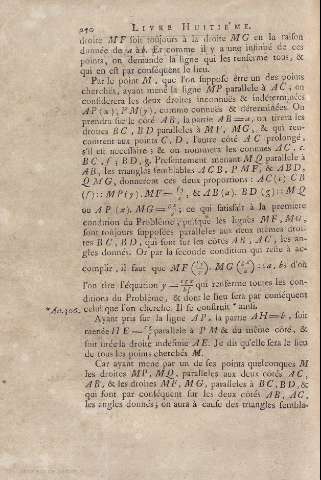 240 LIVRE HUITIÉME.
droite MF soit toujours à la droite MG en la raison
donnée de a à b. Et comme il y a une infinité de ces
points, on demande la ligne qui les renferme tous, &
qui en est par conséquent le lieu.
Par le point M, que l'on suppose être un des points
cherchés, ayant mené la ligne MP parallele à AC, on
considérera les deux droites inconnues & indéterminées
AP (x), PM (y), comme connues & déterminées. On
prendra sur le côté AB, la partie AB = a, on tirera les
droites BC, BD paralleles à MF, MG, & qui ren-
contrent aux points C, D, l'autre côté AC prolongé,
s'il est nécessaire; & on nommera les connues AC, c.
BC, f; BD, g. Présentement menant MQ parallele à
AB, les triangles semblables ACB, PMF, & ABD,
QMG, donneront ces deux proportions: AC (c). CB
(f) :: MP (y). MF = , & AB (a). BD (g) :: MQ
ou AP (x). MG = ; ce qui satisfait à la premiere
condition du Problême, puisque les lignes MF, MG,
sont toujours supposées paralleles aux deux mêmes droi-
tes BC, BD, qui font sur les côtés AB, AC, les an-
gles donnés. Or par la seconde condition qui reste à ac-
complir, il faut que MF . MG :: a, b, d'où
l'on tire l'équation y = qui renferme toutes les con-
ditions du Problême, & dont le lieu sera par conséquent
*Art. 306. celui que l'on cherche. Il se construit * ainsi.
Ayant pris sur la ligne AP, la partie AH = b, soit
menée HE = parallele à PM & du même côté, &
soit tirée la droite indéfinie AE. Je dis qu'elle sera le lieu
de tous les points cherchés M.
Car ayant mené par un de ses points quelconques M
les droites MP, MQ, paralleles aux deux côtés AC,
AB, & les droites MF, MG, paralleles à BC, BD, &
qui font par conséquent sur les deux côtés AB, AC,
les angles donnés; on aura à cause des triangles sembla-